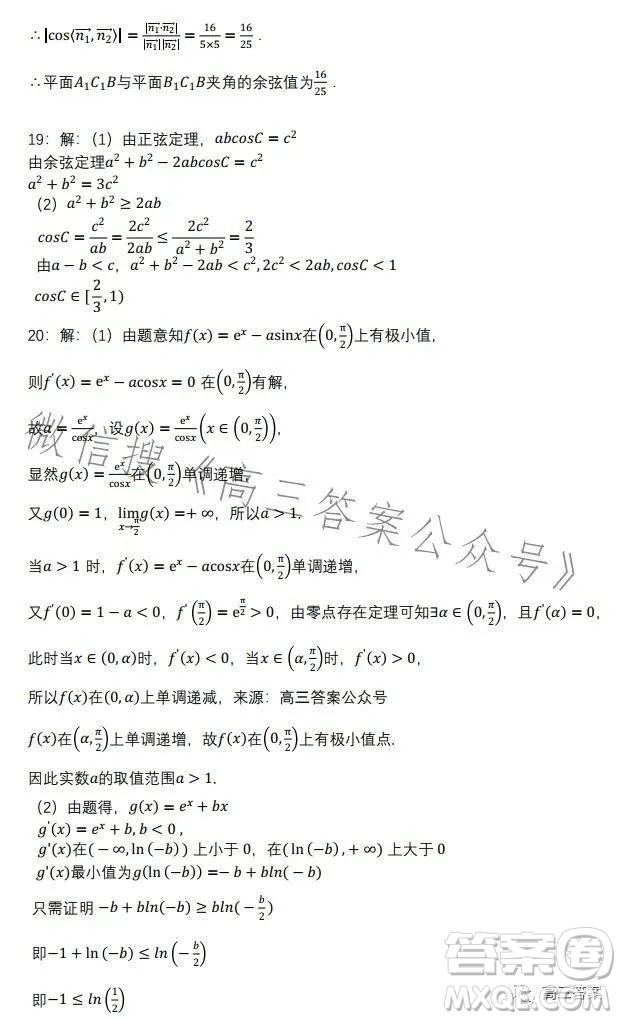 ∴|cos⟨n₁→, n₂→⟩| = |n₁→·n₂→| / |n₁→||n₂→| = 16/(5×5) = 16/25 .
∴平面A₁C₁B与平面B₁C₁B夹角的余弦值为16/25 .
19：解：（1）由正弦定理，abcosC = c²
由余弦定理a² + b² − 2abcosC = c²
a² + b² = 3c²
（2）a² + b² ≥ 2ab
cosC = c²/ab = 2c²/2ab ≤ 2c²/(a² + b²) = 2/3
由a − b < c，a² + b² − 2ab < c², 2c² < 2ab, cosC < 1
cosC ∈ [2/3, 1)
20：解：（1）由题意知f(x) = eˣ − asinx在(0, π/2)上有极小值，
则f'(x) = eˣ − acosx = 0 在(0, π/2)有解，
故a = eˣ/cosx，设g(x) = eˣ/cosx (x ∈ (0, π/2))，
显然g(x) = eˣ/cosx在(0, π/2)单调递增，
又g(0) = 1，lim x→π/2 g(x) = +∞，所以a > 1.
当a > 1 时，f'(x) = eˣ − acosx在(0, π/2)单调递增，
又f'(0) = 1 − a < 0，f'(π/2) = e^(π/2) > 0，由零点存在定理可知∃α ∈ (0, π/2)，且f'(α) = 0，
此时当x ∈ (0, α)时，f'(x) < 0，当x ∈ (α, π/2)时，f'(x) > 0，
所以f(x)在(0, α)上单调递减，来源：高三答案公众号
f(x)在(α, π/2)上单调递增，故f(x)在(0, π/2)上有极小值点.
因此实数a的取值范围a > 1.
（2）由题得，g(x) = eˣ + bx
g'(x) = eˣ + b, b < 0 ,
g'(x)在(−∞, ln(−b)) 上小于 0，在(ln(−b), +∞) 上大于 0
g'(x)最小值为g(ln(−b))=−b + bln(−b)
只需证明 −b + bln(−b) ≥ bln(−b/2)
即−1 + ln(−b) ≤ ln(−b/2)
即−1 ≤ ln(1/2)
微信搜《高三答案公众号》
答案圈
MXQE.COM
高三答案